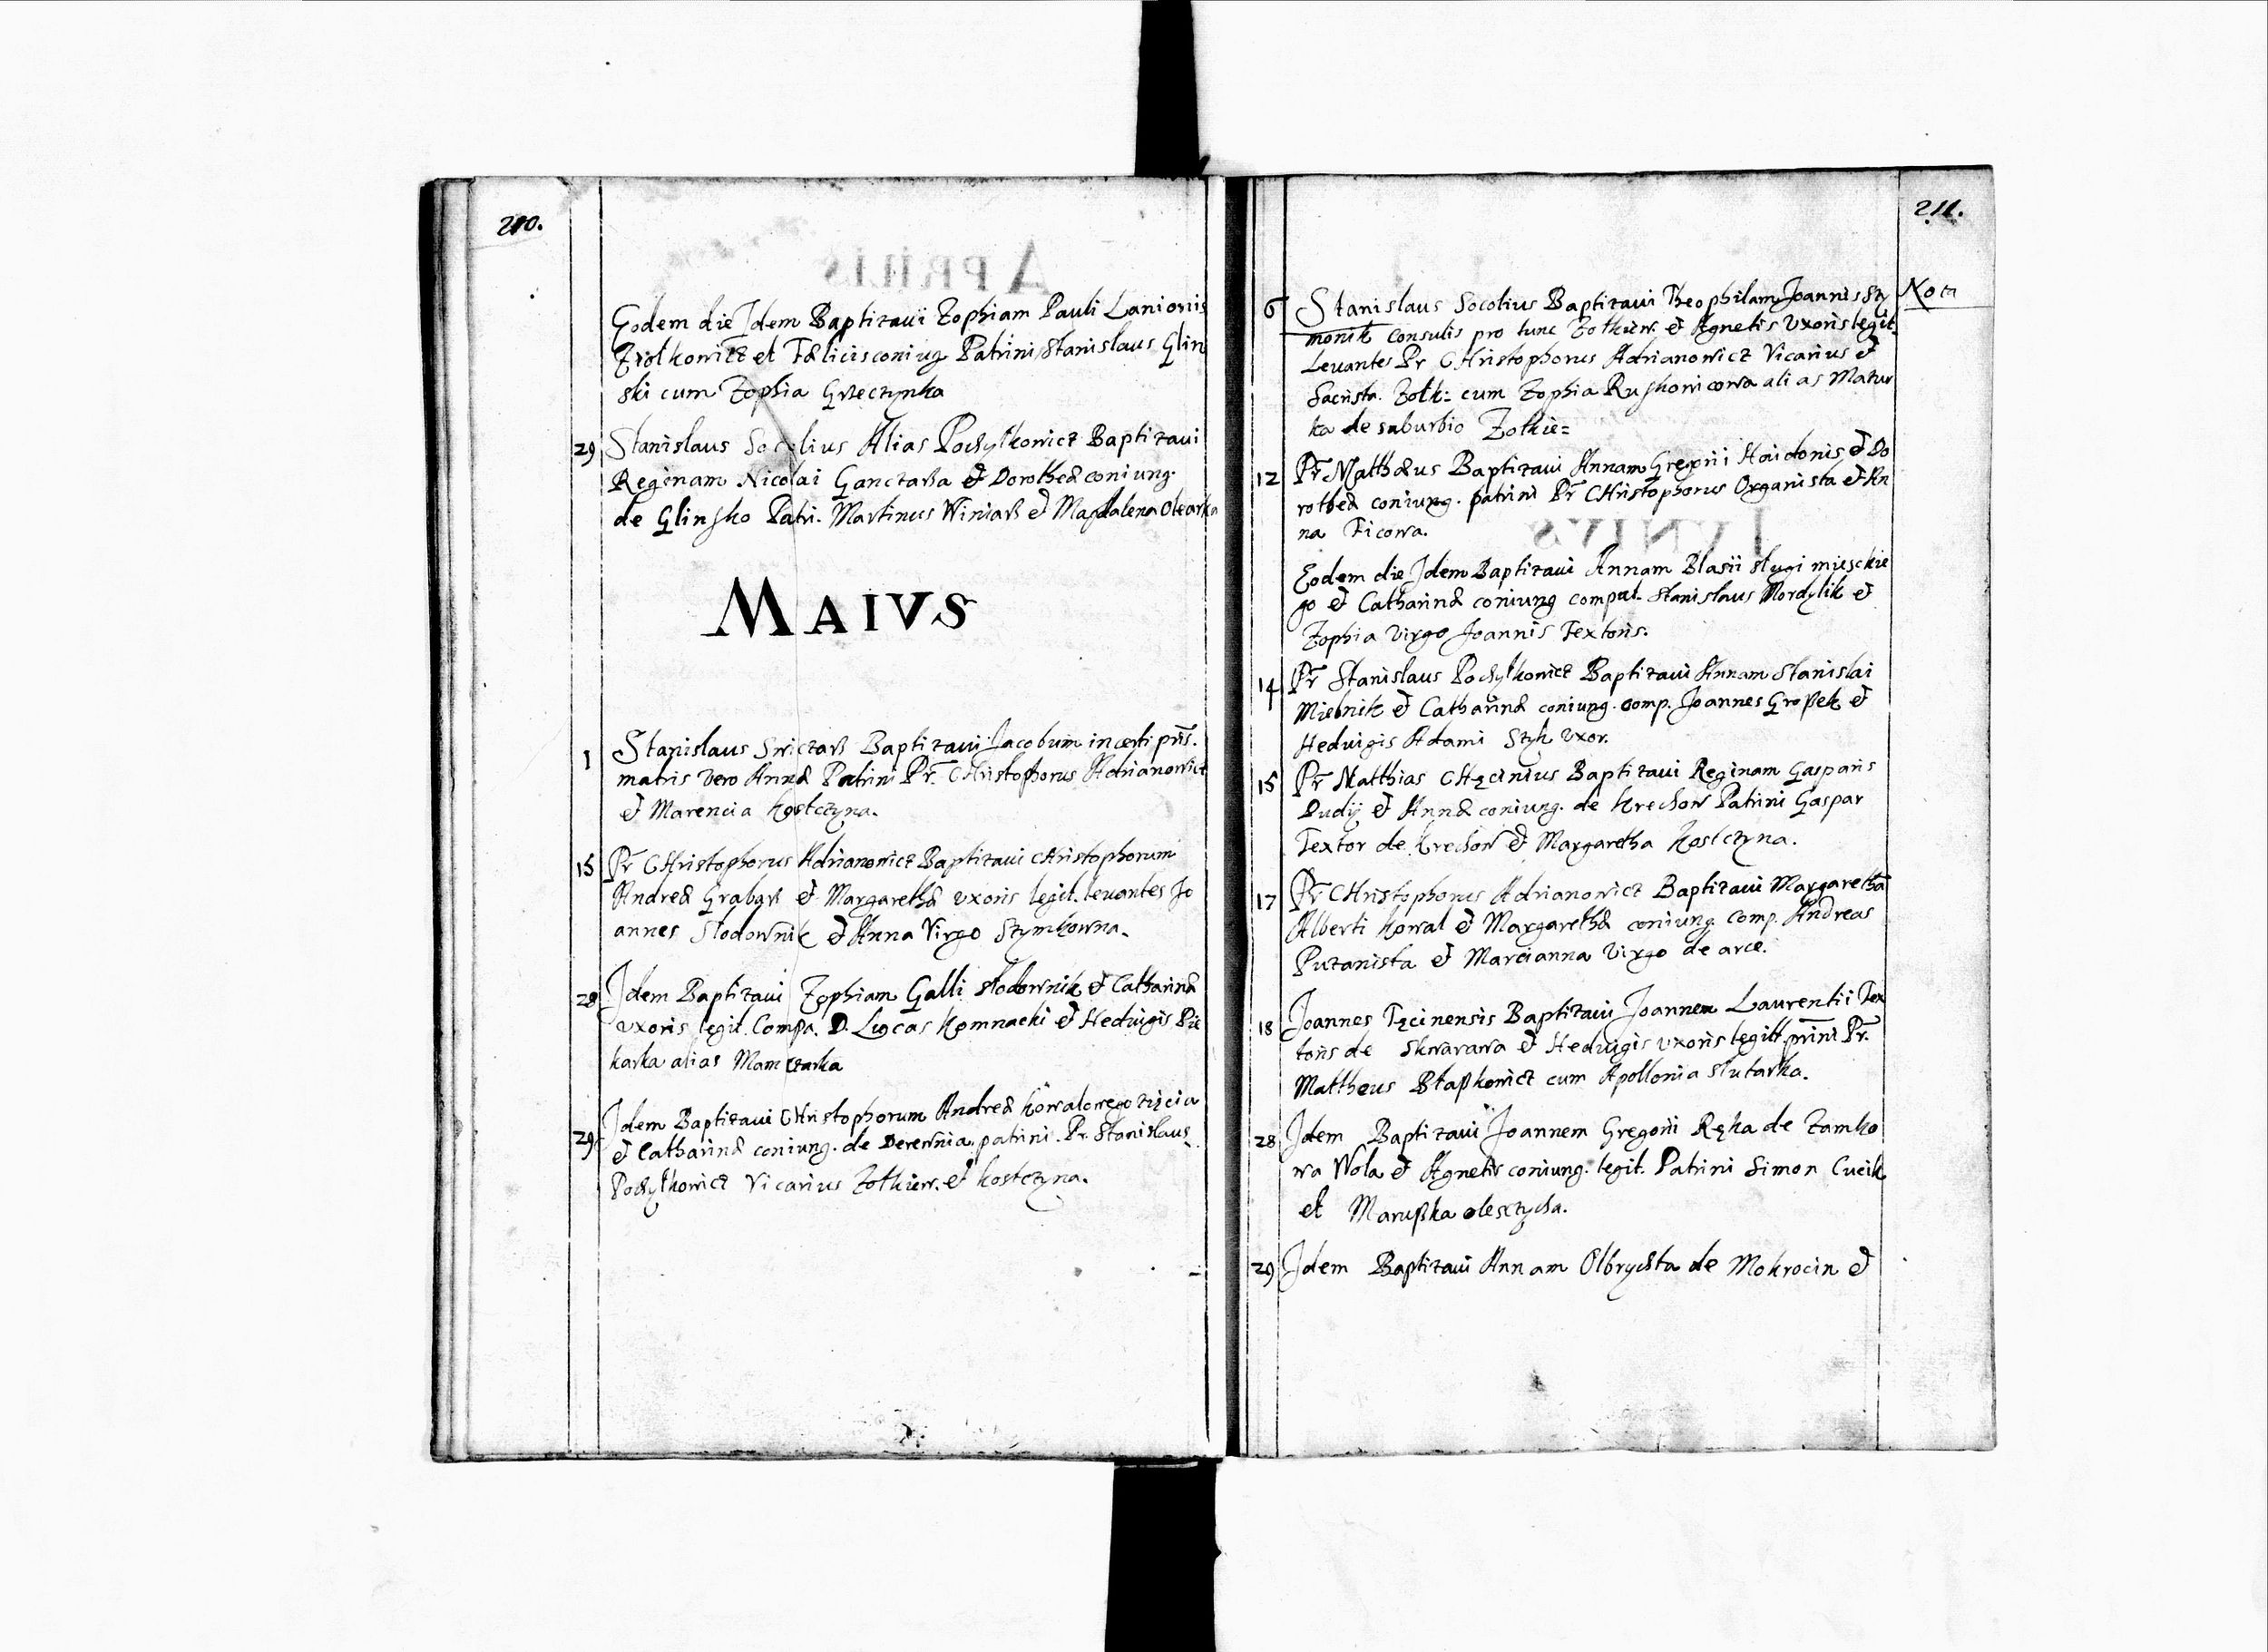 210.
Eodem die Idem Baptizaui Zophiam Pauli Lanionis
Ziolkowicz et Fælicis coniug Patrini Stanislaus Glin
ski cum Zophia Grzeczynka
29 Stanislaus Socolius Alias Pochylkowicz Baptizaui
Reginam Nicolai Ganczarß et Dorotheæ coniung.
de Glinsko Patri. Martinus Winiarß et Magdalena Olearka
MAIVS
1 Stanislaus Swiczarß Baptizaui Jacobum incerti pris.
matris vero Annæ Patrini Pr. CHristophorus Adrianowicz
et Marencia Kostczyna.
15 Pr CHristophorus Adrianowicz Baptizaui CHristophorum
Andreæ Grabarß et Margarethæ vxoris legit. leuantes Jo
annes Slodownik et Anna Virgo Szymkowna.
28 Idem Baptizaui Zophiam Galli slodownik et Catharinæ
vxoris legit. Compa. D. Lucas Komnacki et Heduigis Pie
karka alias Mamczarka
29 Idem Baptizaui CHristophorum Andreæ Kowalowego ziecia
et Catharinæ coniung. de Derewnia patrini. Pr. Stanislaus
Pochylkowicz Vicarius Zolkiew. et Kostczyna.
211.
6 Stanislaus Socolius Baptizaui Theophilam Joannis Szy Nota
monik Consulis pro tunc Zolkiew. et Agnetis Vxoris legit.
Leuantes Pr CHristophorus Adrianowicz Vicarius et
Sacrista. Zolk: cum Zophia Ruskowicowa alias Mazur
ka de suburbio Zolkie=
12 Pr Matthæus Baptizaui Annam Gregorii Haidonis et Do
rotheæ coniung. patrini Pr CHristophorus Organista et An
na Ficowa.
Eodem die Idem Baptizaui Annam Blasii slugi mieJckie
go et Catharinæ coniung compat. Stanislaus Mordylik et
Zophia Virgo Joannis Textoris.
14 Pr Stanislaus Pochylkowicz Baptizaui Annam Stanislai
Mielnik et Catharinæ coniung. comp. Joannes Großek et
Heduigis Adami Szyh Vxor.
15 Pr Matthias CHęcinius Baptizaui Reginam Gasparis
Dudij et Annæ coniung. de Krechow Patrini Gaspar
Textor de Krechow et Margaretha Kostczyna.
17 Pr CHristophorus Adrianowicz Baptizaui Margarethā
Alberti Kowal et Margarethæ coniung. Comp. Andreas
Puzanista et Marcianna Virgo de arce.
18 Joannes Tęcinensis Baptizaui Joannem Laurentii Tex
toris de Skwarawa et Heduigis vxoris legitt prini Pr.
Mattheus Blaßkowicz cum Apollonia slutarka.
28 Idem Baptizaui Joannem Gregorii Ręka de Zamko
wa Wola et Agnetis coniung. legit. Patrini Simon Cueik
et Marußka olesczycha.
29 Idem Baptizaui Annam Olbrychta de Mokrocin et